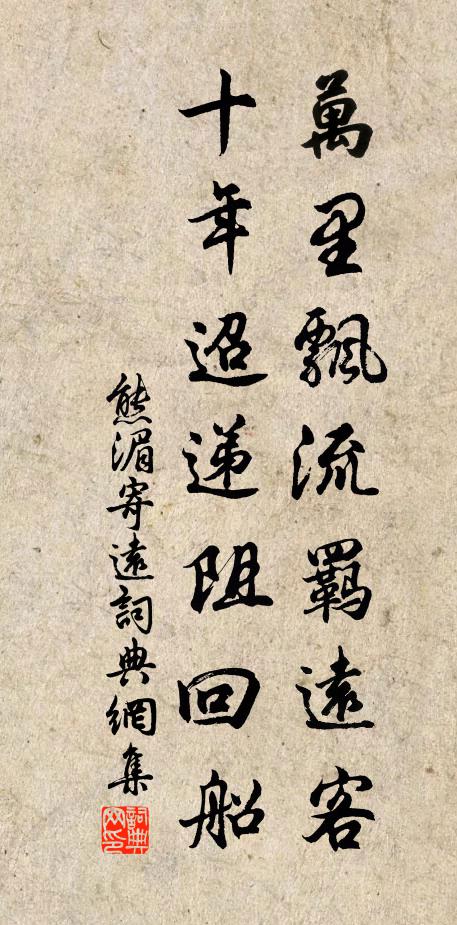 萬里飄流羈遠客
十年迢递阻回船
熊湄寄遠詞典網集
詞典
网印